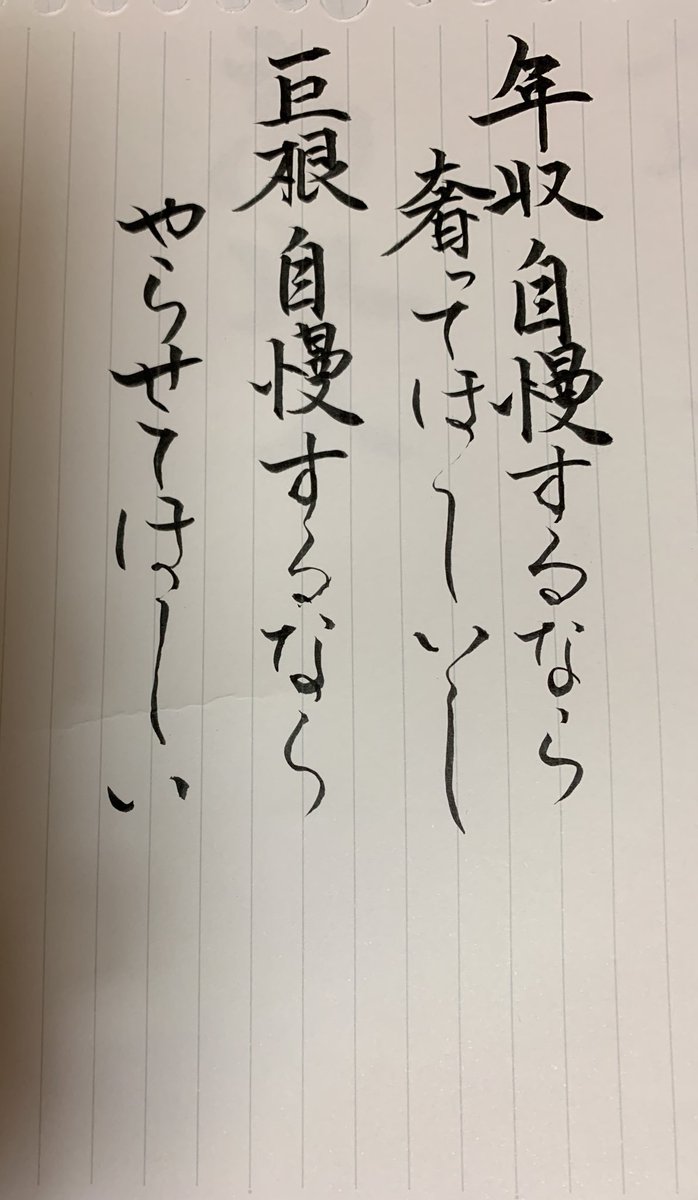 年収自慢するなら
奢ってほしいし
巨根自慢するなら
やらせてほしい